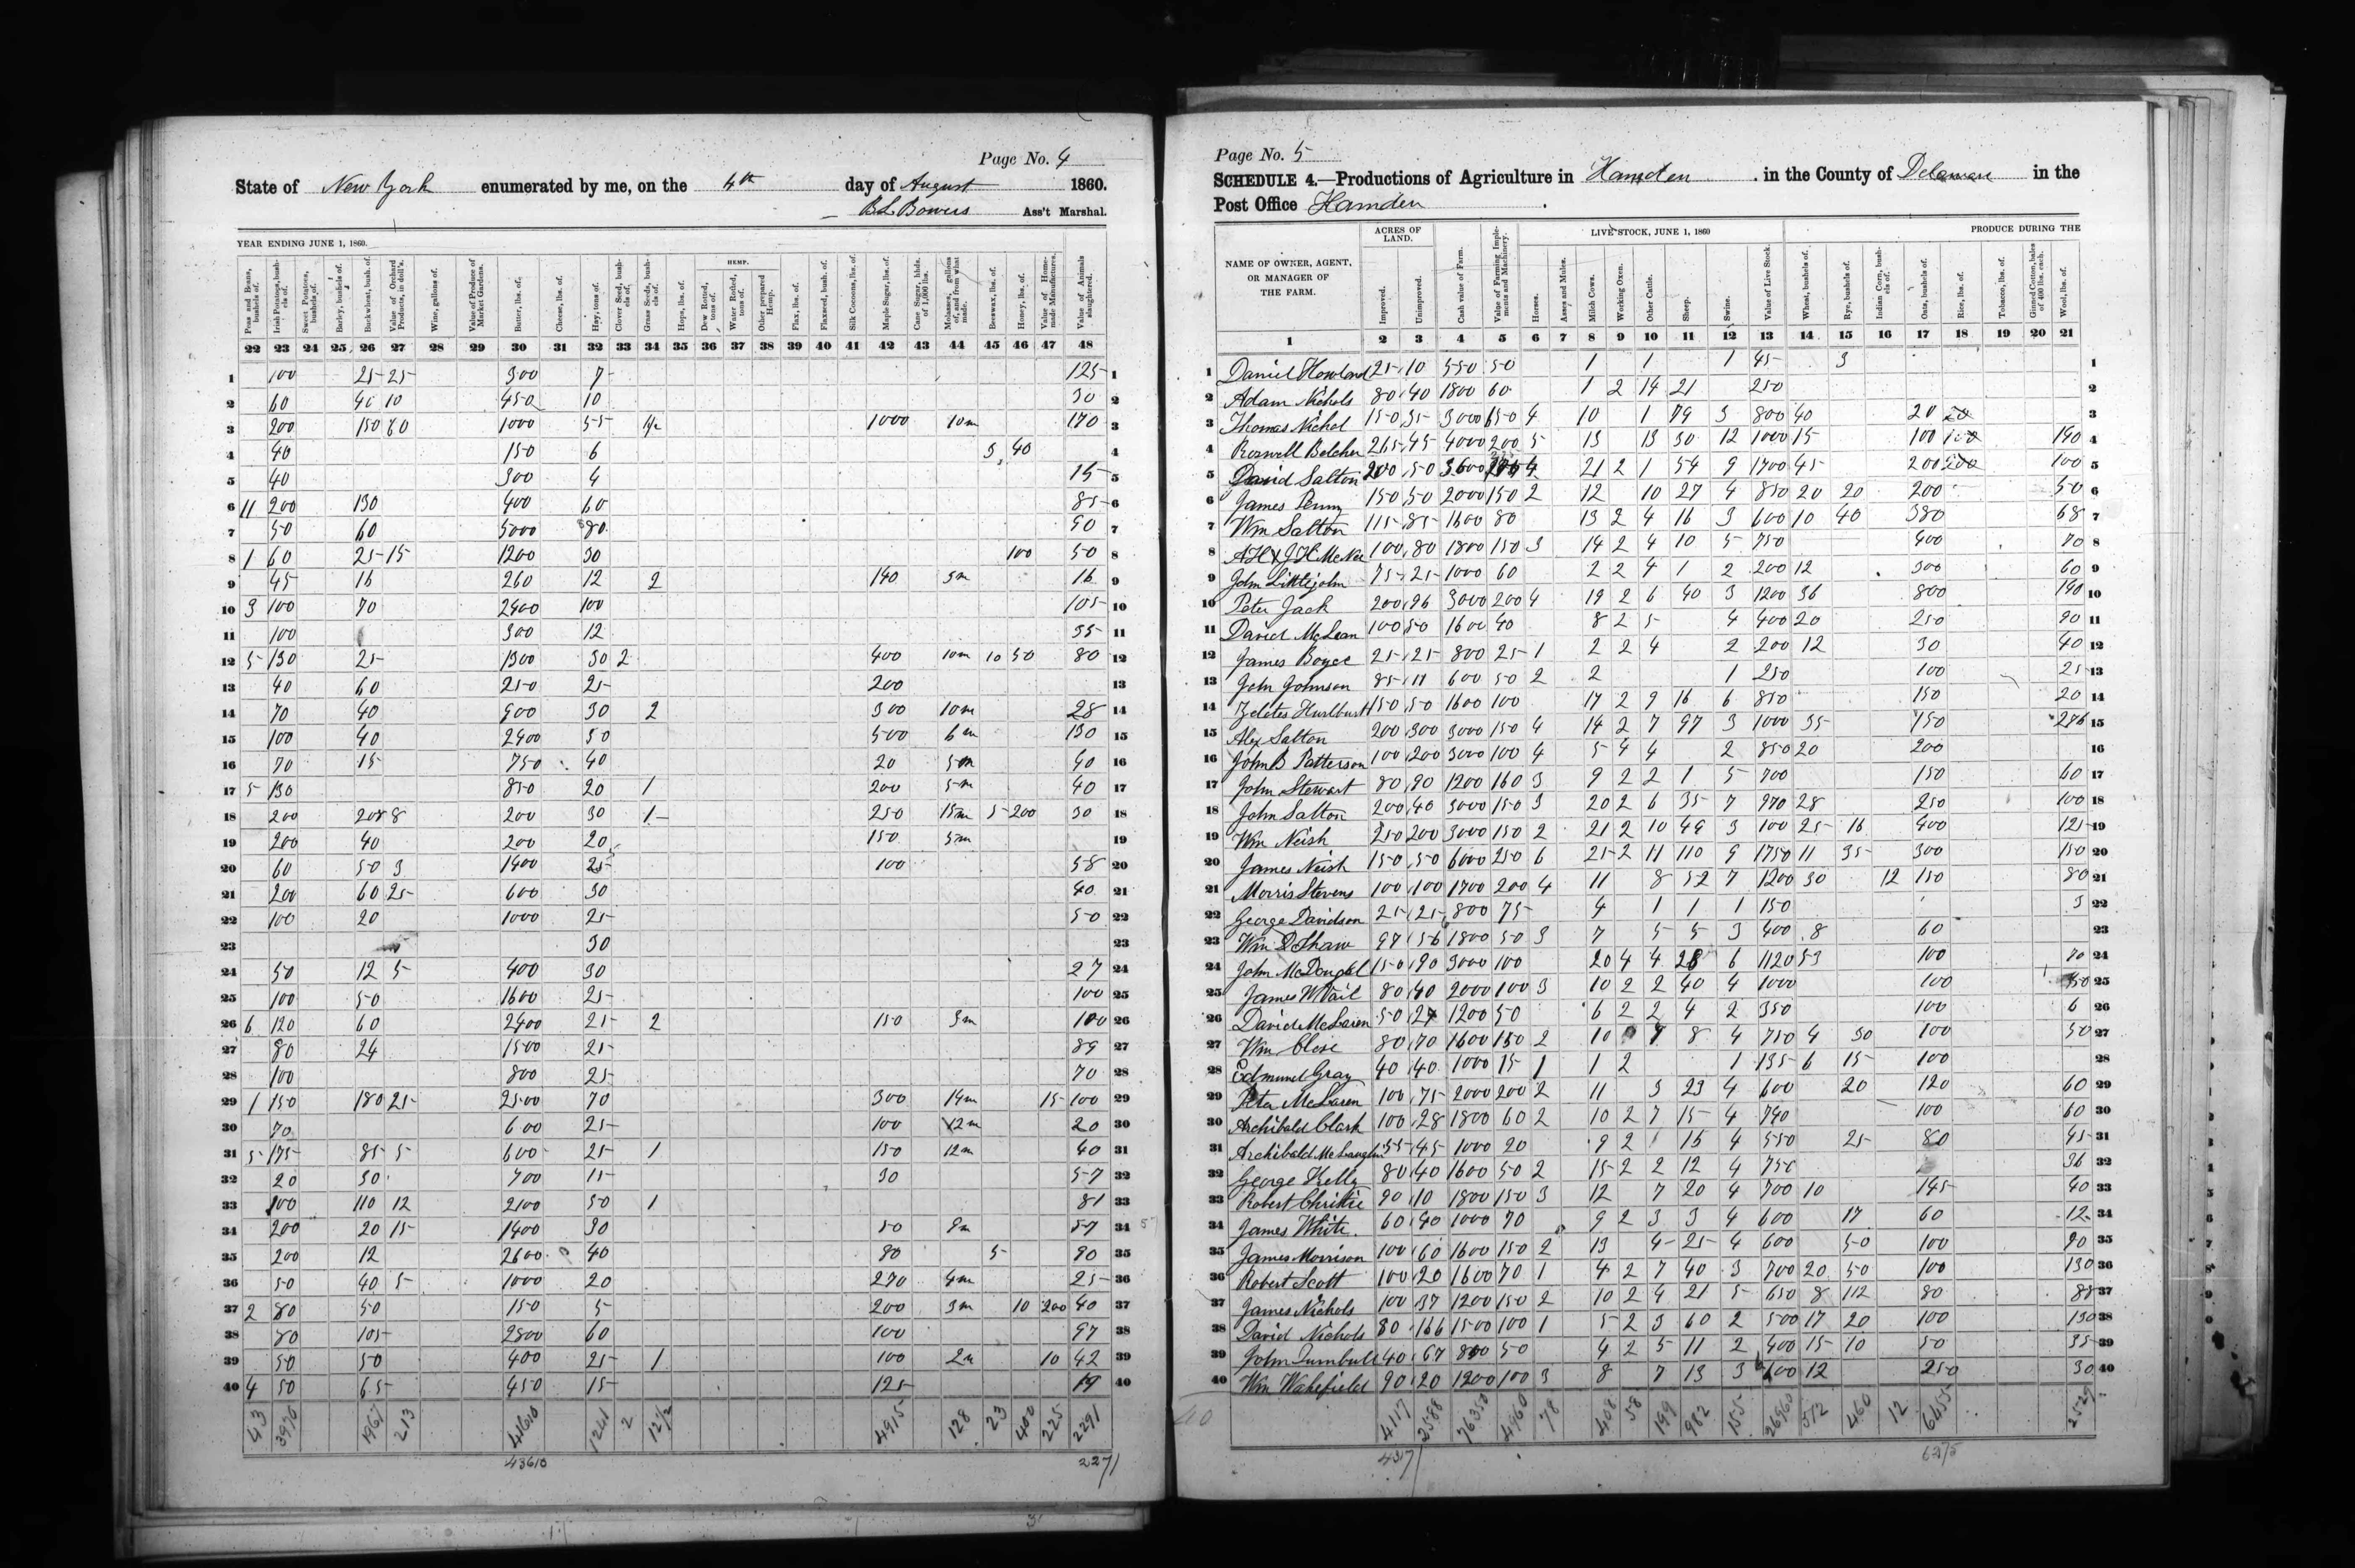 Page No. 4
State of New York enumerated by me, on the 4th day of August 1860.
B L Bowers Ass't Marshal.
YEAR ENDING JUNE 1, 1860.
HEMP.
Peas and Beans, bushels of. Irish Potatoes, bushels of. Sweet Potatoes, bushels of. Barley, bushels of. Buckwheat, bush. of. Value of Orchard Products, in doll's. Wine, gallons of. Value of Produce of Market Gardens. Butter, lbs. of. Cheese, lbs. of. Hay, tons of. Clover Seed, bushels of. Grass Seeds, bushels of. Hops, lbs. of. Dew Rotted, tons of. Water Rotted, tons of. Other prepared Hemp. Flax, lbs. of. Flaxseed, bush. of. Silk Cocoons, lbs. of. Maple Sugar, lbs. of. Cane Sugar, hhds. of 1,000 lbs. Molasses, gallons of, and from what made. Beeswax, lbs. of. Honey, lbs. of. Value of Home-made Manufactures. Value of Animals slaughtered.
22 23 24 25 26 27 28 29 30 31 32 33 34 35 36 37 38 39 40 41 42 43 44 45 46 47 48
1 100 25 25 300 7 125 1
2 60 40 10 450 10 30 2
3 200 150 80 1000 55 1/2 1000 10m 170 3
4 40 150 6 3 40 4
5 40 300 4 15 5
6 11 200 130 400 60 85 6
7 50 60 5000 80 90 7
8 1 60 25 15 1200 30 100 50 8
9 45 16 260 12 2 140 3m 16 9
10 3 100 70 2400 100 105 10
11 100 300 12 35 11
12 5 130 25 1300 30 2 400 10m 10 50 80 12
13 40 60 250 25 200 13
14 70 40 900 30 2 300 10m 28 14
15 100 40 2400 50 500 6m 130 15
16 70 15 750 40 20 5m 40 16
17 5 130 850 20 1 200 5m 40 17
18 200 208 8 200 30 1 250 15m 5 200 30 18
19 200 40 200 20 150 5m 19
20 60 50 3 1400 25 100 58 20
21 200 60 25 600 30 40 21
22 100 20 1000 25 50 22
23 30 23
24 50 12 5 400 30 27 24
25 100 50 1600 25 100 25
26 6 120 60 2400 25 2 150 3m 100 26
27 80 24 1500 25 89 27
28 100 800 25 70 28
29 1 150 180 25 2500 70 300 14m 15 100 29
30 70 600 25 100 12m 20 30
31 5 175 85 5 600 25 1 150 12m 40 31
32 20 30 700 15 30 57 32
33 100 110 12 2100 50 1 81 33
34 200 20 15 1400 30 50 9m 57 34
35 200 12 2600 40 80 5 90 35
36 50 40 5 1000 20 270 4m 25 36
37 2 80 50 150 5 200 3m 10 200 40 37
38 80 105 2800 60 100 97 38
39 50 50 400 25 1 100 2m 10 42 39
40 4 50 65 450 15 125 19 40
43 3976 1967 213 41610 1241 2 12 1/2 4915 128 23 400 225 2291
43610 2271
Page No. 5
SCHEDULE 4.—Productions of Agriculture in Hamden in the County of Delaware in the
Post Office Hamden
ACRES OF LAND. LIVE STOCK, JUNE 1, 1860 PRODUCE DURING THE
NAME OF OWNER, AGENT, OR MANAGER OF THE FARM. Improved. Unimproved. Cash value of Farm. Value of Farming Implements and Machinery. Horses. Asses and Mules. Milch Cows. Working Oxen. Other Cattle. Sheep. Swine. Value of Live Stock. Wheat, bushels of. Rye, bushels of. Indian Corn, bushels of. Oats, bushels of. Rice, lbs. of. Tobacco, lbs. of. Ginned Cotton, bales of 400 lbs. each. Wool, lbs. of.
1 2 3 4 5 6 7 8 9 10 11 12 13 14 15 16 17 18 19 20 21
1 Daniel Howland 25 10 550 50 1 1 1 45 3 1
2 Adam Nichols 80 40 1800 60 1 2 14 21 250 2
3 Thomas Nichol 150 35 3000 150 4 10 1 79 3 800 40 20 20 3
4 Roswell Belcher 265 45 4000 200 5 13 13 30 12 1000 15 100 100 190 4
5 David Salton 200 50 3600 4 21 2 1 54 9 1700 45 200 200 100 5
6 James Penny 150 50 2000 150 2 12 10 27 4 850 20 20 200 50 6
7 Wm Salton 115 85 1600 80 13 2 4 16 3 600 10 40 380 68 7
8 A H & J H McNee 100 80 1800 150 3 14 2 4 10 5 750 400 70 8
9 John Littlejohn 75 25 1000 60 2 2 4 1 2 200 12 300 60 9
10 Peter Jack 200 96 3000 200 4 19 2 6 40 3 1200 36 800 190 10
11 David McLean 100 50 1600 40 8 2 5 4 400 20 250 90 11
12 James Boyce 25 25 800 25 1 2 2 4 2 200 12 30 40 12
13 John Johnson 85 11 600 50 2 2 1 250 100 25 13
14 Zelotes Hurlburt 150 50 1600 100 17 2 9 16 6 850 150 20 14
15 Alex Salton 200 300 3000 150 4 14 2 7 97 3 1000 35 150 276 15
16 John B Patterson 100 200 3000 100 4 5 4 4 2 850 20 200 16
17 John Stewart 80 90 1200 160 3 9 2 2 1 5 700 150 60 17
18 John Salton 200 40 3000 150 3 20 2 6 35 7 970 28 250 100 18
19 Wm Neish 250 200 3000 150 2 21 2 10 49 3 100 25 16 400 125 19
20 James Neish 150 50 6000 250 6 25 2 11 110 9 1750 11 35 300 150 20
21 Morris Stevens 100 100 1700 200 4 11 8 52 7 1200 30 12 150 80 21
22 George Davidson 25 25 800 75 4 1 1 1 150 3 22
23 Wm D Shaw 97 56 1800 50 3 7 5 5 3 400 8 60 23
24 John McDougal 150 90 3000 100 20 4 4 28 6 1120 53 100 70 24
25 James W Vail 80 40 2000 100 3 10 2 2 40 4 1000 100 25
26 David McLaren 50 24 1200 50 6 2 2 4 2 350 100 6 26
27 Wm Close 80 70 1600 150 2 10 8 4 750 4 30 100 50 27
28 Edmund Gray 40 40 1000 15 1 1 2 1 135 6 15 100 28
29 Peter McLaren 100 75 2000 200 2 11 3 23 4 600 20 120 60 29
30 Archibald Clark 100 28 1800 60 2 10 2 7 15 4 740 100 60 30
31 Archibald McLaughlin 55 45 1000 20 9 2 16 4 550 25 80 45 31
32 George Kelly 80 40 1600 50 2 15 2 2 12 4 750 36 32
33 Robert Christie 90 10 1800 150 3 12 7 20 4 700 10 145 40 33
34 James White 60 40 1000 70 9 2 3 3 4 600 17 60 12 34
35 James Morrison 100 60 1600 150 2 13 4 25 4 600 50 100 90 35
36 Robert Scott 100 20 1600 70 1 4 2 7 40 3 700 20 50 100 130 36
37 James Nichols 100 37 1200 150 2 10 2 4 21 5 650 8 112 80 88 37
38 David Nichols 80 166 1500 100 1 5 2 3 60 2 500 17 20 100 130 38
39 John Turnbull 40 67 800 50 4 2 5 11 2 400 15 10 50 35 39
40 Wm Wakefield 90 20 1200 100 3 8 7 13 3 600 12 250 30 40
40 4117 2588 76350 4960 78 408 58 199 982 155 26960 512 460 12 6455 2529
4317 6275